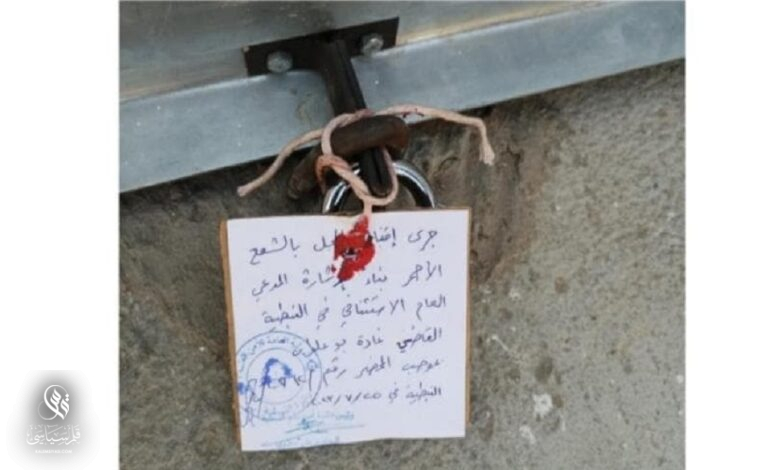 جرى إقفال المحل بالشمع
الأحمر بناء لإشارة المدعي
العام الاستئنافي في النبطية
القاضي غادة بو علوان
بموجب المحضر رقم
النبطية في
قلم سياسي